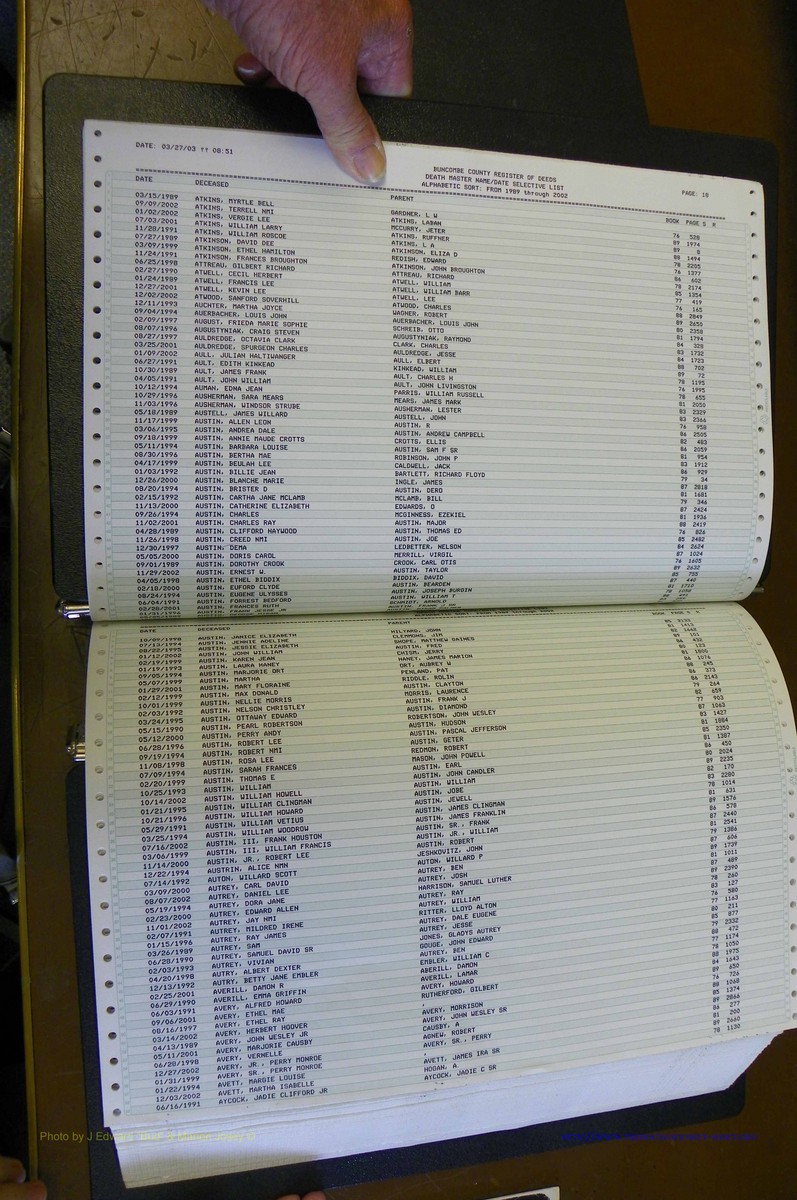 DATE: 03/27/03 @ 08:51
BUNCOMBE COUNTY REGISTER OF DEEDS
DEATH MASTER NAME/DATE SELECTIVE LIST
ALPHABETIC SORT: FROM 1989 through 2002
PAGE: 18
DATE DECEASED PARENT BOOK PAGE S #
03/15/1989 ATKINS, MYRTLE BELL GARDNER, L W 76 528
09/09/2002 ATKINS, TERRELL NMI ATKINS, LABAN 89 1974
01/02/2002 ATKINS, VERGIE LEE MCCURRY, JETER 89 8
07/03/2001 ATKINS, WILLIAM LARRY ATKINS, RUFFNER 88 1494
11/28/1991 ATKINS, WILLIAM ROSCOE ATKINS, L A 78 2205
07/27/1989 ATKINSON, DAVID DEE ATKINSON, ELIZA D 76 1377
03/09/1999 ATKINSON, ETHEL HAMILTON REDISH, EDWARD 86 602
11/24/1991 ATKINSON, FRANCES BROUGHTON ATKINSON, JOHN BROUGHTON 78 2174
06/25/1998 ATTREAU, GILBERT RICHARD ATTREAU, RICHARD 85 1354
02/27/1990 ATWELL, CECIL HERBERT ATWELL, WILLIAM 77 419
01/24/1989 ATWELL, FRANCIS LEE ATWELL, WILLIAM BARR 76 165
12/27/2001 ATWELL, KEVIN LEE ATWELL, LEE 88 2849
12/02/2002 ATWOOD, SANFORD SOVERHILL ATWOOD, CHARLES 89 2650
12/11/1993 AUCHTER, MARTHA JOYCE WAGNER, ROBERT 80 2358
09/04/1994 AUERBACHER, LOUIS JOHN AUERBACHER, LOUIS JOHN 81 1794
02/09/1997 AUGUST, FRIEDA MARIE SOPHIE SCHREIB, OTTO 84 328
08/07/1996 AUGUSTYNIAK, CRAIG STEVEN AUGUSTYNIAK, RAYMOND 83 1732
08/27/1997 AULDREDGE, OCTAVIA CLARK CLARK, CHARLES 84 1723
03/25/2001 AULDREDGE, SPURGEON CHARLES AULDREDGE, JESSE 88 702
01/09/2002 AULL, JULIAN HALTIWANGER AULL, ELBERT 89 72
06/27/1991 AULT, EDITH KINKEAD KINKEAD, WILLIAM 78 1195
10/30/1989 AULT, JAMES FRANK AULT, CHARLES H 76 1995
04/05/1991 AULT, JOHN WILLIAM AULT, JOHN LIVINGSTON 78 655
10/12/1994 AUMAN, EDNA JEAN PARRIS, WILLIAM RUSSELL 81 2050
10/29/1996 AUSHERMAN, SARA MEARS MEARS, JAMES MARK 83 2329
11/03/1996 AUSHERMAN, WINDSOR STRUBE AUSHERMAN, LESTER 83 2366
05/18/1989 AUSTELL, JAMES WILLARD AUSTELL, JOHN 76 958
11/17/1999 AUSTIN, ALLEN LEON AUSTIN, R 86 2505
03/06/1995 AUSTIN, ANDREA DALE AUSTIN, ANDREW CAMPBELL 82 483
09/18/1999 AUSTIN, ANNIE MAUDE CROTTS CROTTS, ELLIS 86 2059
05/11/1994 AUSTIN, BARBARA LOUISE AUSTIN, SAM F SR 81 954
08/30/1996 AUSTIN, BERTHA MAE ROBINSON, JOHN P 83 1912
04/17/1999 AUSTIN, BEULAH LEE CALDWELL, JACK 86 929
01/03/1992 AUSTIN, BILLIE JEAN BARTLETT, RICHARD FLOYD 79 34
12/26/2000 AUSTIN, BLANCHE MARIE INGLE, JAMES 87 2818
08/20/1994 AUSTIN, BRISTER D AUSTIN, DERO 81 1681
02/15/1992 AUSTIN, CARTHA JANE MCLAMB MCLAMB, BILL 79 346
11/13/2000 AUSTIN, CATHERINE ELIZABETH EDWARDS, O 87 2424
09/26/1994 AUSTIN, CHARLES MCGINNESS, EZEKIEL 81 1936
11/02/2001 AUSTIN, CHARLES RAY AUSTIN, MAJOR 88 2419
04/28/1989 AUSTIN, CLIFFORD HAYWOOD AUSTIN, THOMAS ED 76 826
11/26/1998 AUSTIN, CREED NMI AUSTIN, JOE 85 2482
12/30/1997 AUSTIN, DEMA LEDBETTER, NELSON 84 2624
05/05/2000 AUSTIN, DORIS CAROL MERRILL, VIRGIL 87 1024
09/01/1989 AUSTIN, DOROTHY CROOK CROOK, CARL OTIS 76 1605
11/29/2002 AUSTIN, ERNEST W. AUSTIN, TAYLOR 89 2632
04/05/1998 AUSTIN, ETHEL BIDDIX BIDDIX, DAVID 85 755
02/18/2000 AUSTIN, EUFORD CLYDE AUSTIN, BEARDEN 87 440
08/24/1994 AUSTIN, EUGENE ULYSSES AUSTIN, JOSEPH BURGIN 81 1710
06/04/1991 AUSTIN, FORREST BEDFORD AUSTIN, WILLIAM T 78 1058
02/28/2001 AUSTIN, FRANCES RUTH SCHMIDT, ARNOLD
DATE DECEASED PARENT BOOK PAGE S #
10/09/1998 AUSTIN, JANICE ELIZABETH HILYARD, JOHN 85 2120
07/13/1994 AUSTIN, JENNIE ADELINE CLEMMONS, JIM 81 1413
08/22/1995 AUSTIN, JESSIE ELIZABETH SHOPE, MATTHEW GAINES 82 1662
01/12/2002 AUSTIN, JOHN WILLIAM AUSTIN, FRED 89 101
02/19/1999 AUSTIN, KAREN JEAN CHISM, JERRY 86 432
01/17/1993 AUSTIN, LAURA HANEY HANEY, JAMES MARION 80 123
09/05/1994 AUSTIN, MARJORIE ORT ORT, AUBREY W 81 1805
05/07/1999 AUSTIN, MARTHA PENLAND, PAT 86 1076
01/29/2001 AUSTIN, MARY FLORAINE RIDDLE, ROLIN 88 245
AUSTIN, MAX DONALD AUSTIN, CLAYTON 86 373
10/01/1999 AUSTIN, NELLIE MORRIS MORRIS, LAURENCE 86 2143
02/03/1992 AUSTIN, NELSON CHRISTLEY AUSTIN, FRANK J 79 264
03/24/1995 AUSTIN, OTTAWAY EDWARD AUSTIN, DIAMOND 82 659
05/15/1990 AUSTIN, PEARL ROBERTSON ROBERTSON, JOHN WESLEY 77 903
05/12/2000 AUSTIN, PERRY ANDY AUSTIN, HUDSON 87 1063
06/28/1996 AUSTIN, ROBERT LEE AUSTIN, PASCAL JEFFERSON 83 1427
09/19/1994 AUSTIN, ROBERT NMI AUSTIN, GETER 81 1884
11/08/1998 AUSTIN, ROSA LEE REDMON, ROBERT 85 2350
07/09/1994 AUSTIN, SARAH FRANCES MASON, JOHN POWELL 81 1387
02/20/1999 AUSTIN, THOMAS E AUSTIN, EARL 86 450
10/25/1993 AUSTIN, WILLIAM AUSTIN, JOHN CANDLER 80 2024
10/14/2002 AUSTIN, WILLIAM HOWELL AUSTIN, WILLIAM 89 2235
01/21/1995 AUSTIN, WILLIAM CLINGMAN AUSTIN, JOBE 82 170
10/21/1996 AUSTIN, WILLIAM HOWARD AUSTIN, JEWELL 83 2280
05/29/1991 AUSTIN, WILLIAM VETIUS AUSTIN, JAMES CLINGMAN 78 1014
03/25/1994 AUSTIN, WILLIAM WOODROW AUSTIN, JAMES FRANKLIN 81 631
07/16/2002 AUSTIN, III, FRANK HOUSTON AUSTIN, SR., FRANK 89 1576
03/06/1999 AUSTIN, III, WILLIAM FRANCIS AUSTIN, JR., WILLIAM 86 578
11/14/2000 AUSTIN, JR., ROBERT LEE AUSTIN, ROBERT 87 2440
12/22/1994 AUSTRIN, ALICE NMN JESHKOVITZ, JOHN 81 2541
07/14/1992 AUTON, WILLARD SCOTT AUTON, WILLARD P 79 1386
03/09/2000 AUTREY, CARL DAVID AUTREY, BEN 87 606
08/07/2002 AUTREY, DANIEL LEE AUTREY, JOSH 89 1739
05/19/1994 AUTREY, DORA JANE HARRISON, SAMUEL LUTHER 81 1011
02/23/2000 AUTREY, EDWARD ALLEN AUTREY, RAY 87 489
11/01/2002 AUTREY, JAY NMI AUTREY, WILLIAM 89 2390
02/07/1991 AUTREY, MILDRED IRENE RITTER, LLOYD ALTON 78 260
01/15/1996 AUTREY, RAY JAMES AUTREY, DALE EUGENE 83 127
03/26/1989 AUTREY, SAM AUTREY, JESSE 76 580
06/28/1990 AUTREY, SAMUEL DAVID SR JONES, GLADYS AUTREY 77 1163
02/03/1993 AUTREY, VIVIAN GOUGE, JOHN EDWARD 80 211
04/20/1998 AUTRY, ALBERT DEXTER AUTREY, BEN 85 877
12/13/1992 AUTRY, BETTY JANE EMBLER EMBLER, WILLIAM C 79 2332
02/25/2001 AVERILL, DAMON R ABERILL, DAMON 88 472
06/29/1990 AVERILL, EMMA GRIFFIN AVERILL, LAMAR 77 1174
06/03/1991 AVERY, ALFRED HOWARD AVERY, HOWARD 78 1050
09/06/2001 AVERY, ETHEL MAE RUTHERFORD, GILBERT 88 1975
08/16/1997 AVERY, ETHEL RAY , 84 1643
03/14/2002 AVERY, HERBERT HOOVER AVERY, MORRISON 89 650
04/13/1989 AVERY, JOHN WESLEY JR AVERY, JOHN WESLEY SR 76 726
05/11/2001 AVERY, MARJORIE CAUSBY CAUSBY, A 88 1068
06/28/1998 AVERY, VERNELLE AGNEW, ROBERT 85 1374
12/27/2002 AVERY, JR., PERRY MONROE AVERY, SR., PERRY 89 2866
01/31/1999 AVERY, SR., PERRY MONROE , 86 277
01/22/1994 AVETT, MARGIE LOUISE AVETT, JAMES IRA SR 81 200
12/03/2002 AVETT, MARTHA ISABELLE HOGAN, A 89 2660
06/16/1991 AYCOCK, JADIE CLIFFORD JR AYCOCK, JADIE C SR 78 1130
Photo by J Edw